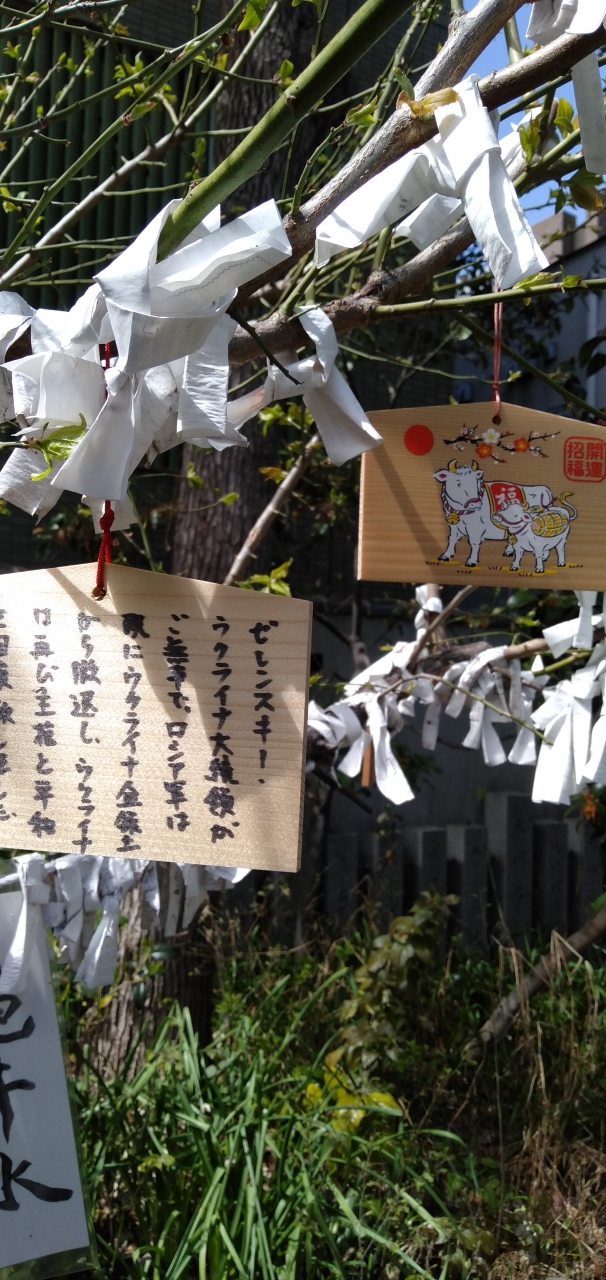 ゼレンスキー!
ウクライナ大統領が
ご無事で、ロシア軍は
既にウクライナ全領土
から撤退し、ウクライナ
は再び主権と平和
を回復しました
開運
招福
福
水